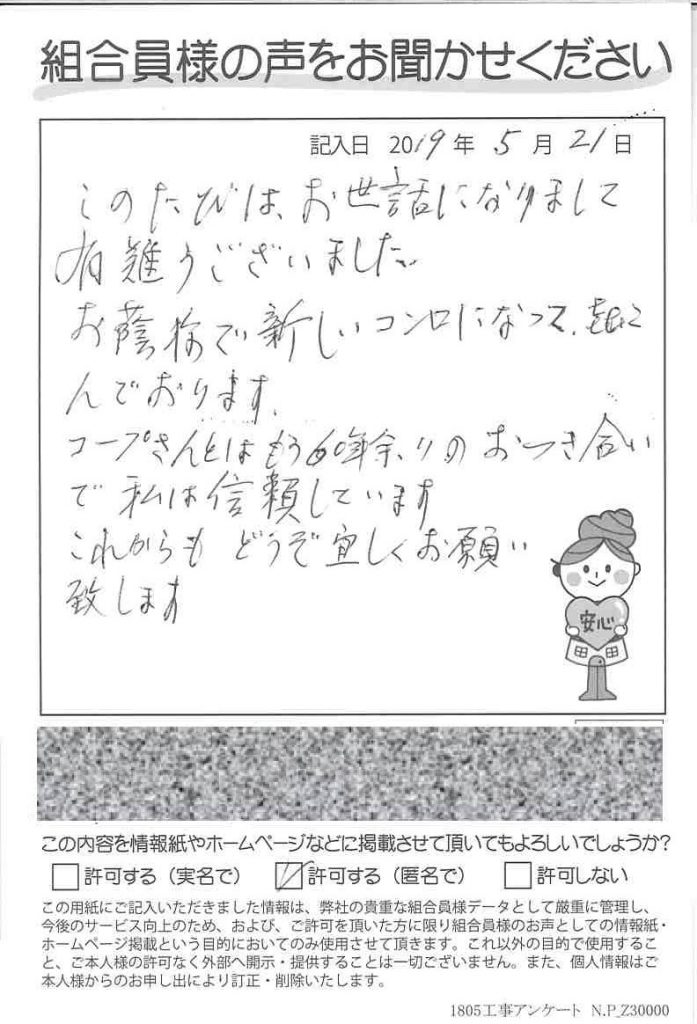 組合員様の声をお聞かせください
記入日 2019年 5月 21日
このたびは、お世話になりまして
有難うございました。
お蔭様で新しいコンロになって、喜こ
んでおります。
コープさんとはもう60年余りのおつき合い
で私は信頼しています
これからもどうぞ宜しくお願い
致します
安心
この内容を情報紙やホームページなどに掲載させて頂いてもよろしいでしょうか?
許可する(実名で) 許可する(匿名で) 許可しない
この用紙にご記入いただきました情報は、弊社の貴重な組合員様データとして厳重に管理し、
今後のサービス向上のため、および、ご許可を頂いた方に限り組合員様のお声としての情報紙・
ホームページ掲載という目的においてのみ使用させて頂きます。これ以外の目的で使用するこ
と、ご本人様の許可なく外部へ開示・提供することは一切ございません。また、個人情報はご
本人様からのお申し出により訂正・削除いたします。
1805工事アンケート N.P_Z30000